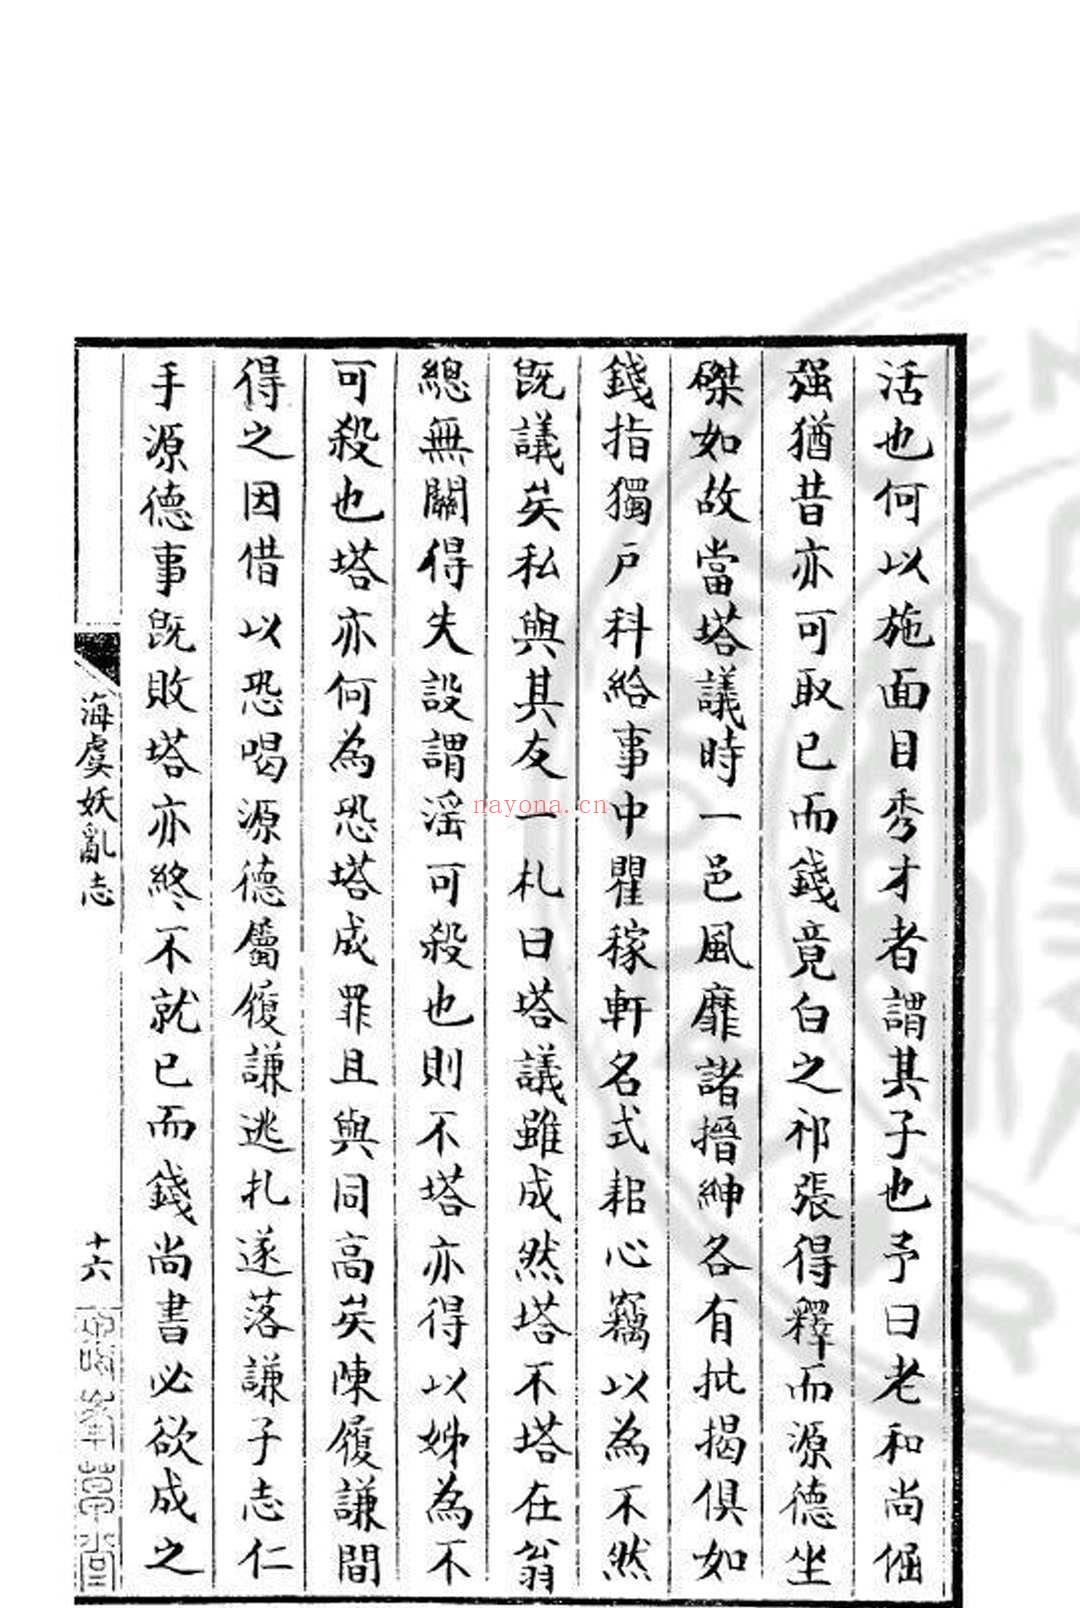 活也何以施面目秀才者謂其子也予曰老和尚倔
强猶昔亦可取已而錢竟白之祁張得釋而源德坐
磔如故當塔議時一邑風靡諸搢紳各有批揭俱如
錢指獨戶科給事中瞿稼軒名式耜心竊以為不然
旣議矣私與其友一札曰塔議雖成然塔不塔在翁
總無關得失設謂滛可殺也則不塔亦得以姊為不
可殺也塔亦何為恐塔成罪且與同高矣陳履謙間
得之因借以恐喝源德屬履謙逃扎遂落謙子志仁
手源德事旣敗塔亦終不就已而錢尚書必欲成之
海虞妖亂志
十六
nayona.cn